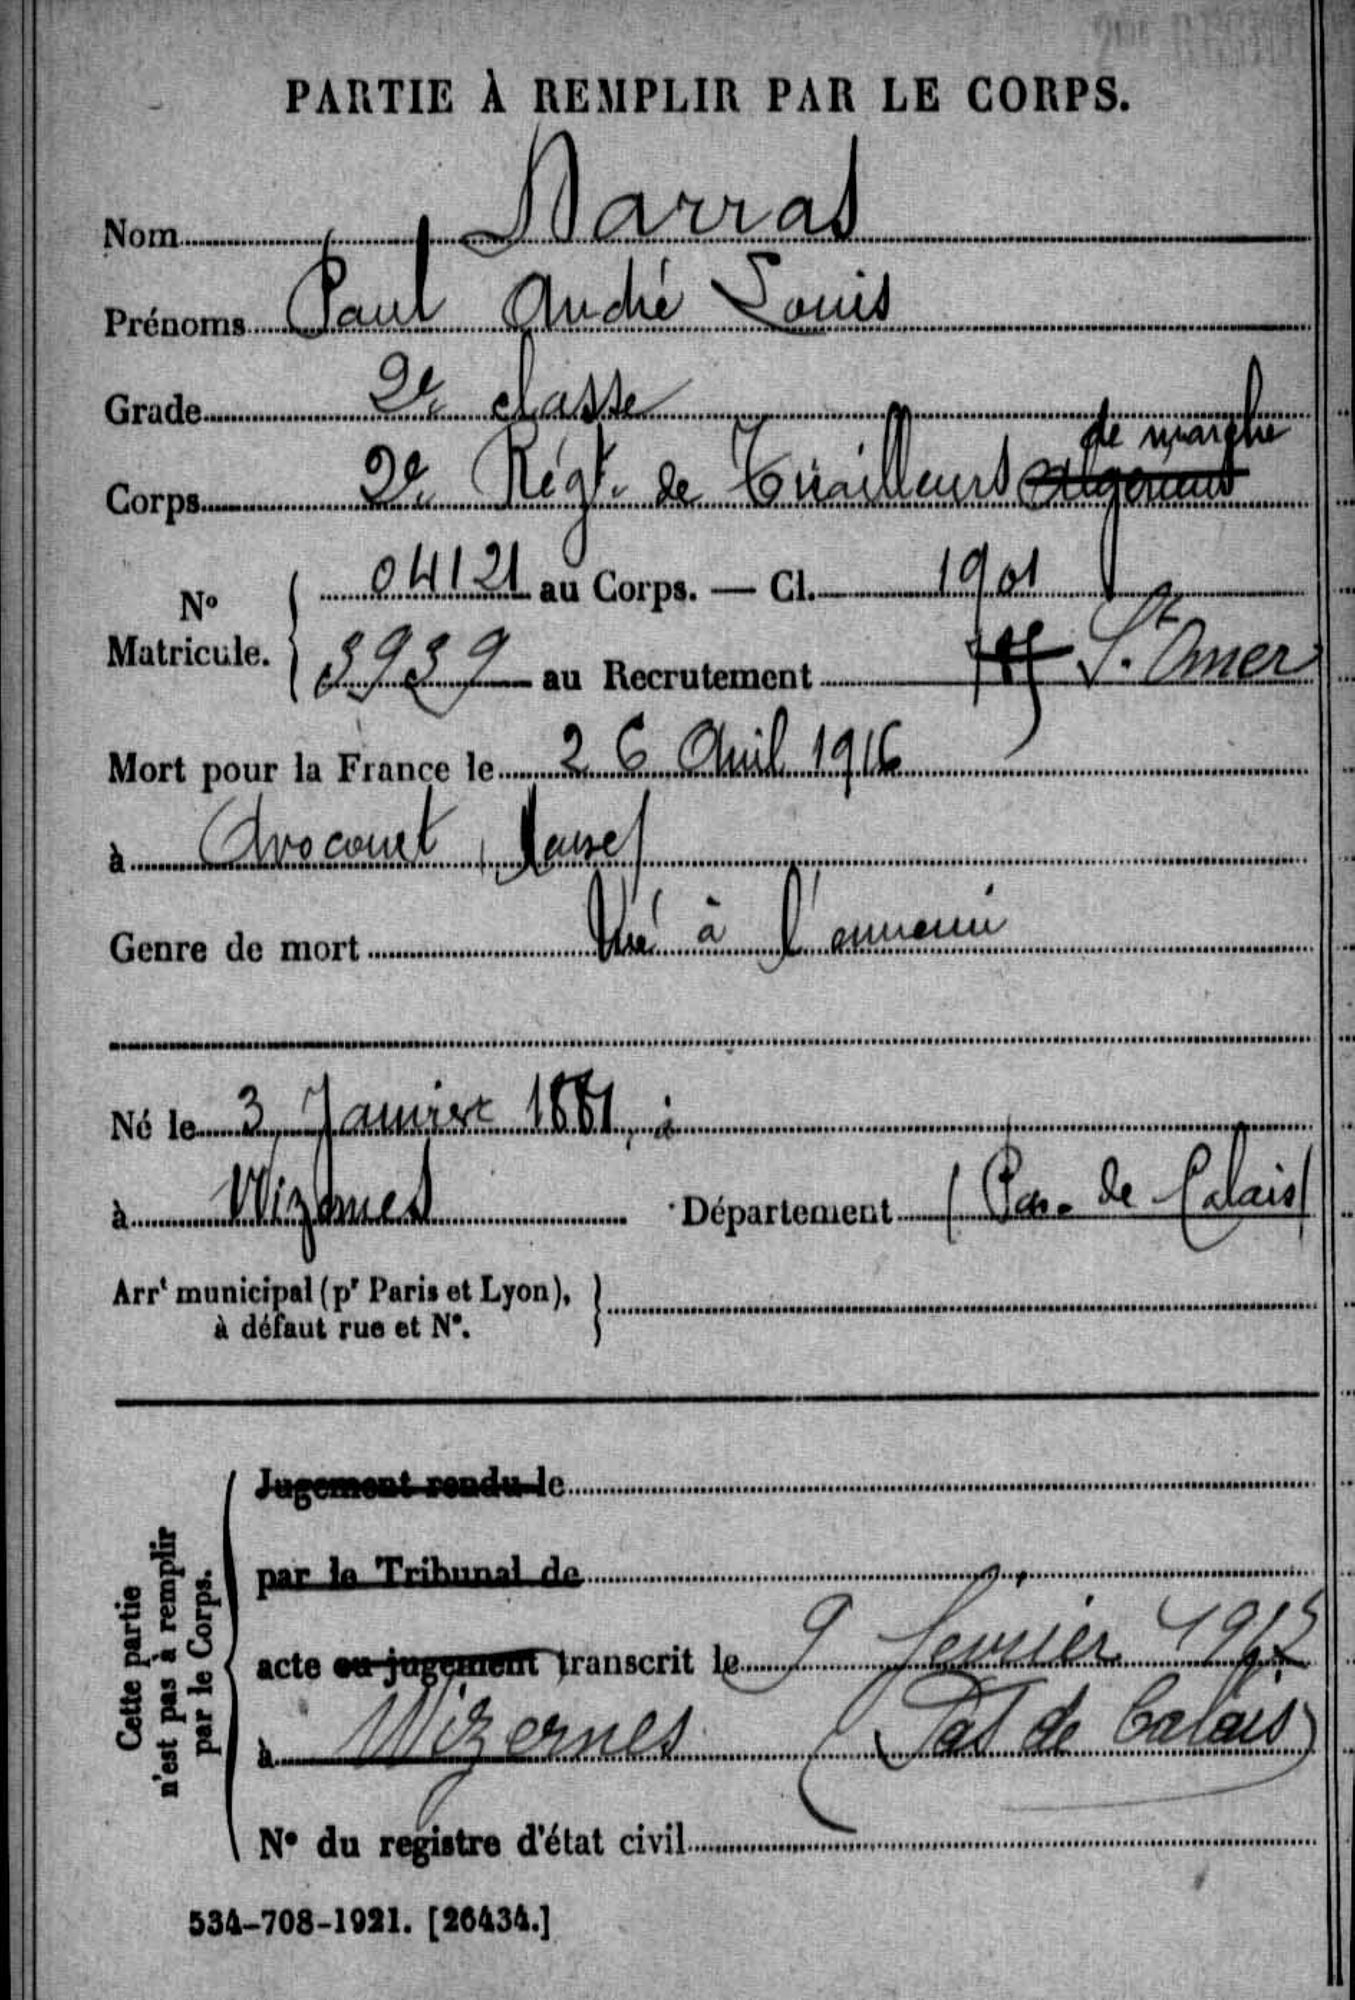 PARTIE À REMPLIR PAR LE CORPS.
Nom Darras
Prénoms Paul André Louis
Grade 2e classe
de marche
Corps 2e Régt. de Tirailleurs Algériens
04121 au Corps. — Cl. 1901
No
Matricule.
3939 au Recrutement St. Omer
Mort pour la France le 26 Avril 1916
à Avocourt, Meuse
Genre de mort Tué à l'ennemi
Né le 3 Janvier 1881, à
à Wizernes Département (Pas-de Calais)
Arrt municipal (pr Paris et Lyon),
à défaut rue et No.
Cette partie
n'est pas à remplir
par le Corps.
Jugement rendu le
par le Tribunal de
acte ou jugement transcrit le 9 février
à Wizernes (Pas de Calais)
No du registre d'état civil
534-708-1921. [26434.]